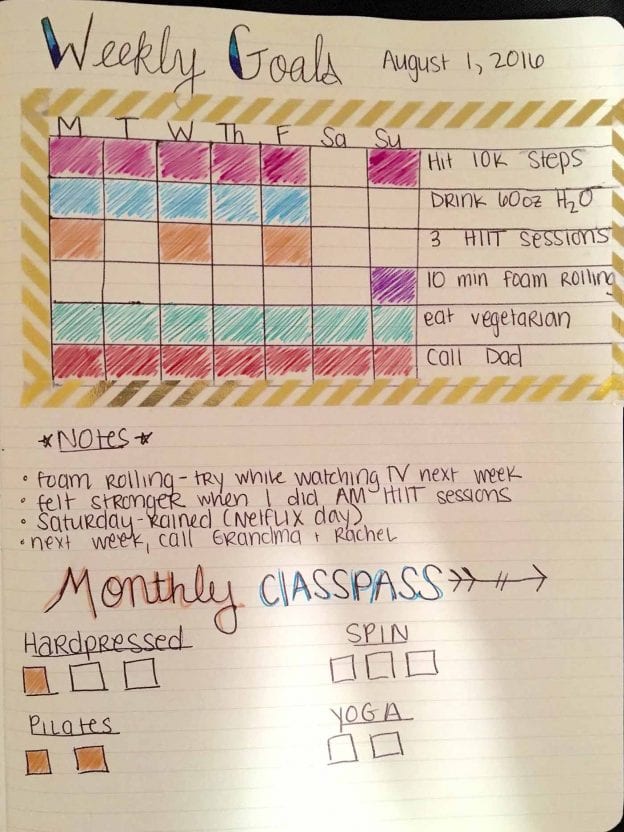 Weekly Goals August 1, 2016
M T W Th F Sa Su
Hit 10K Steps
DRINK 60oz H2O
3 HIIT SESSIONS
10 min foam Rolling
eat vegetarian
Call Dad
*Notes*
• foam Rolling - try while watching TV next week
• felt stronger when I did AM HIIT sessions
• Saturday - Rained (Netflix day)
• next week, call Grandma + Rachel
Monthly CLASSPASS
Hardpressed SPIN
Pilates YOGA